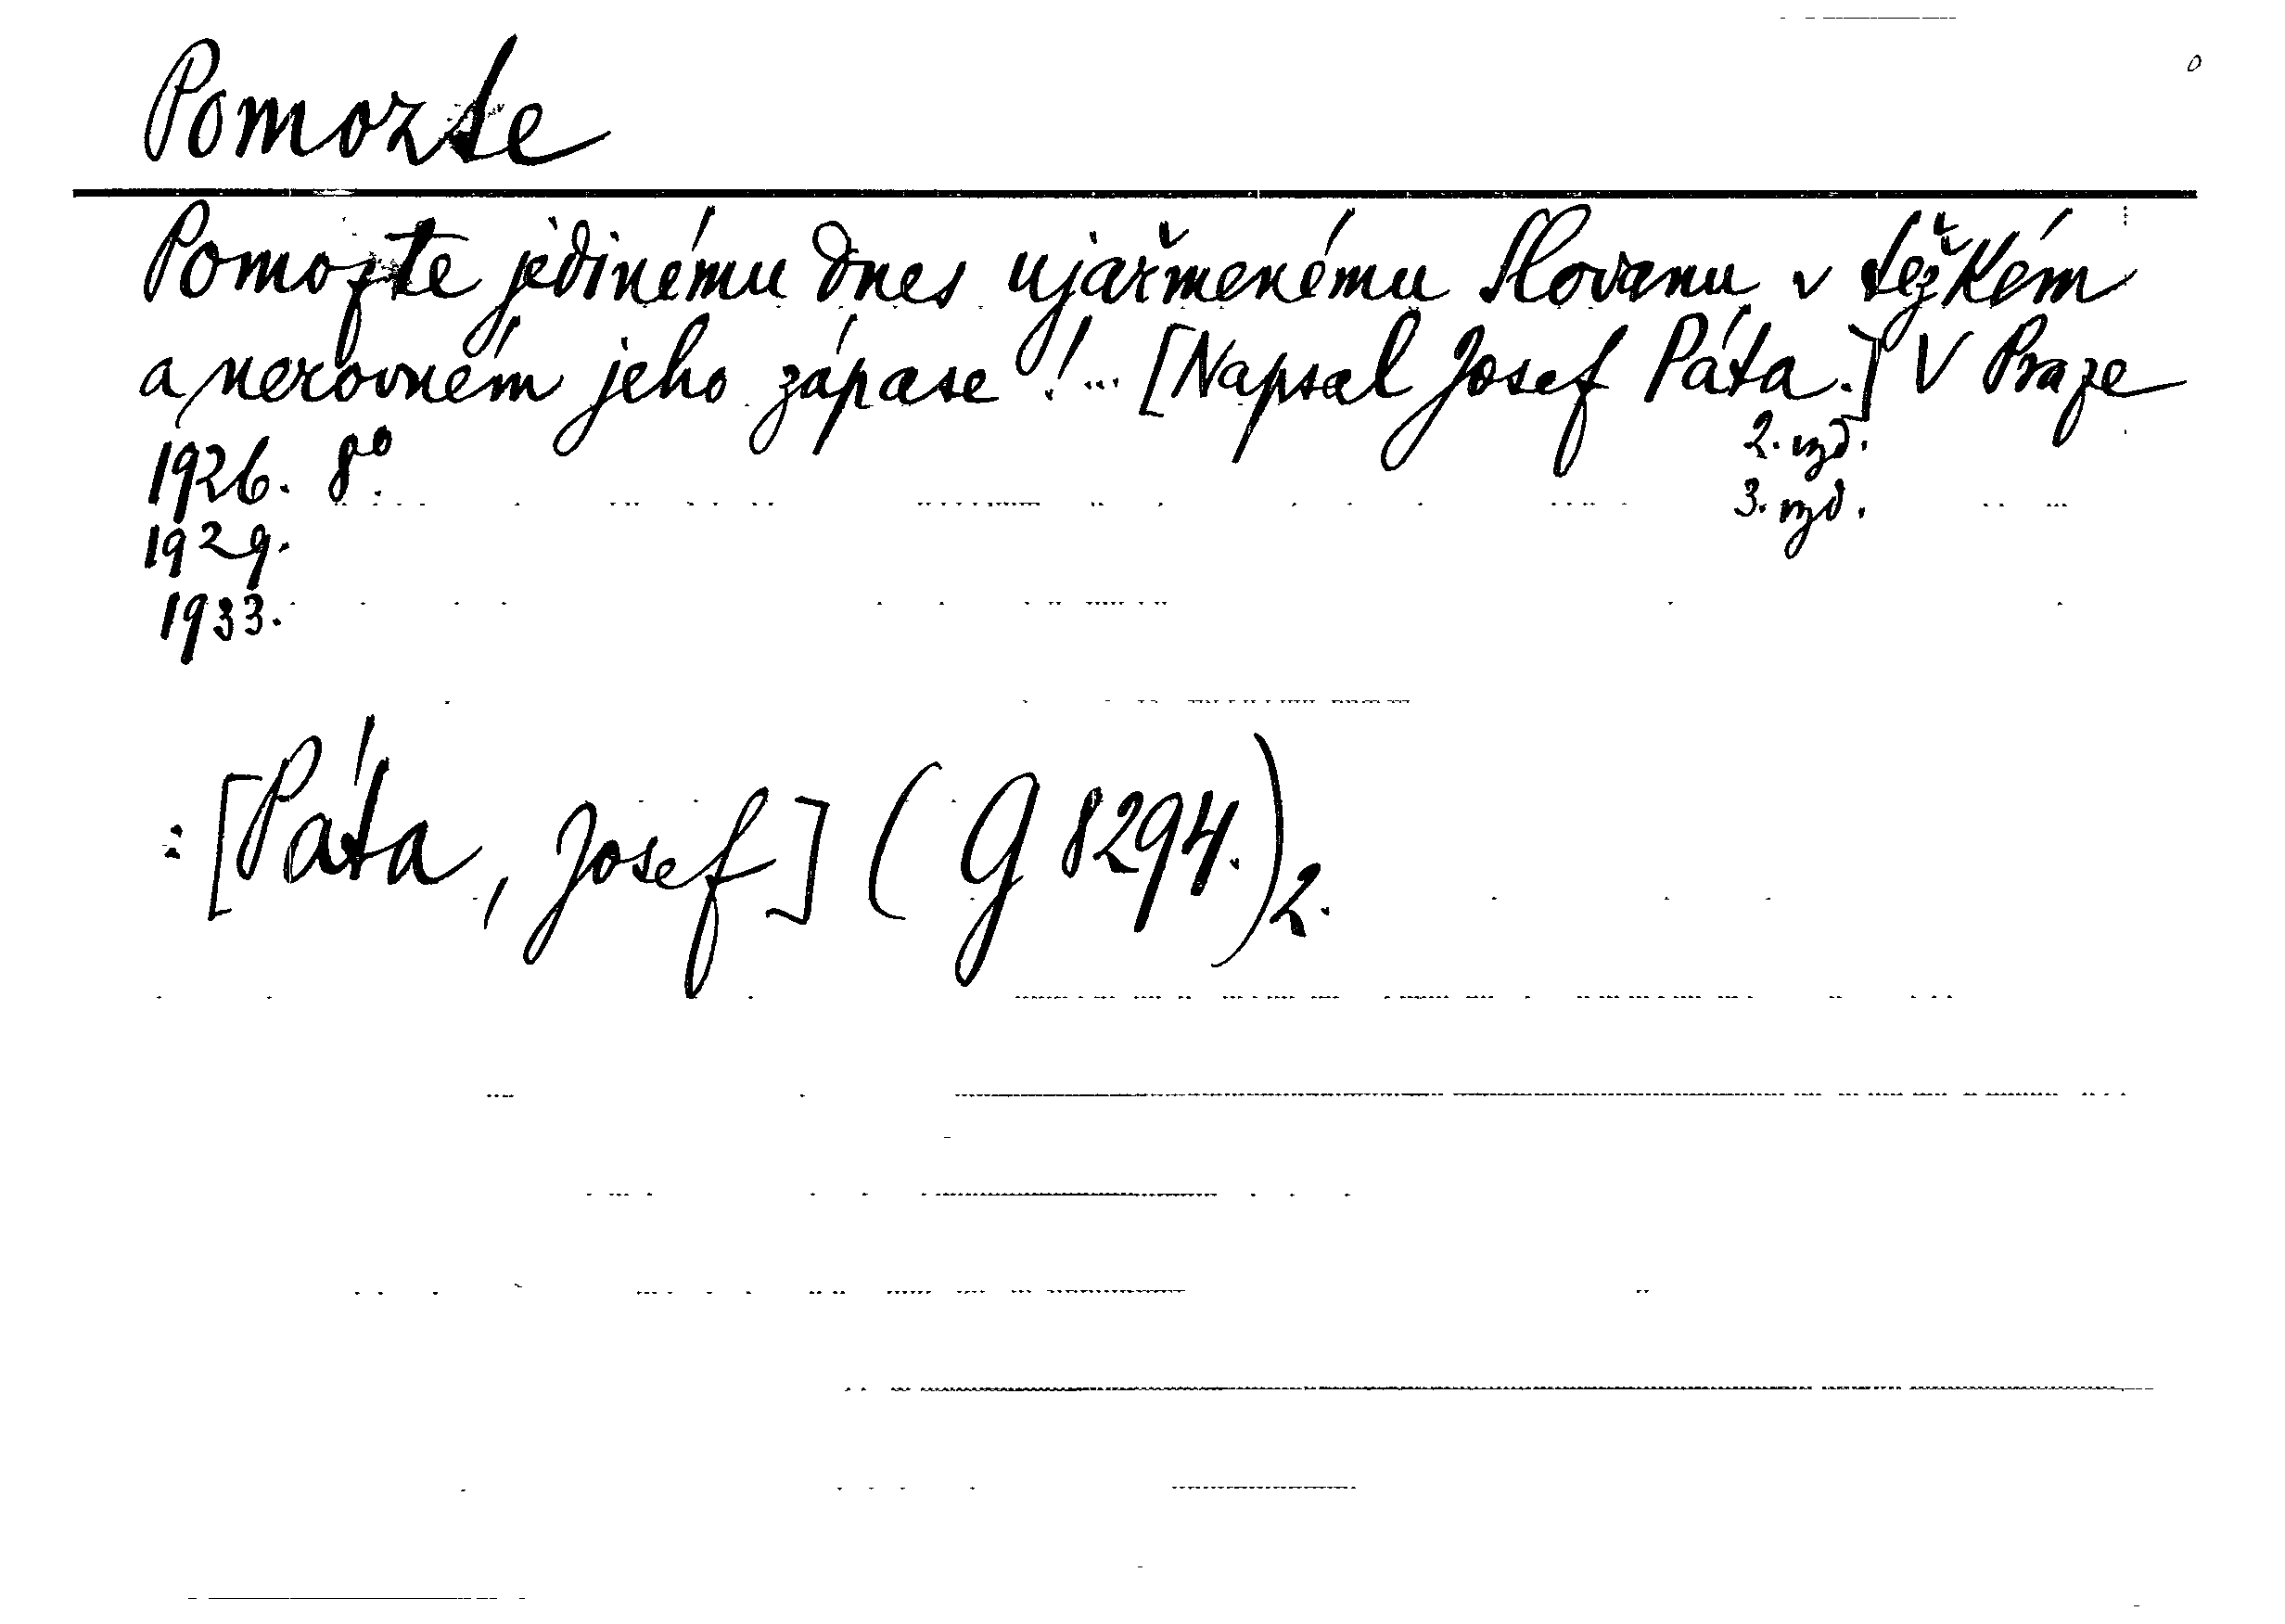 Pomozte
Pomozte jedinému dnes ujařmenému Slovanu v těžkém
a nerovném jeho zápase!... [Napsal Josef Páta.] V Praze
1926. 8° 2. vyd.
1929. 3. vyd.
1933.
: [Páta, Josef] (G 8294.) 2.